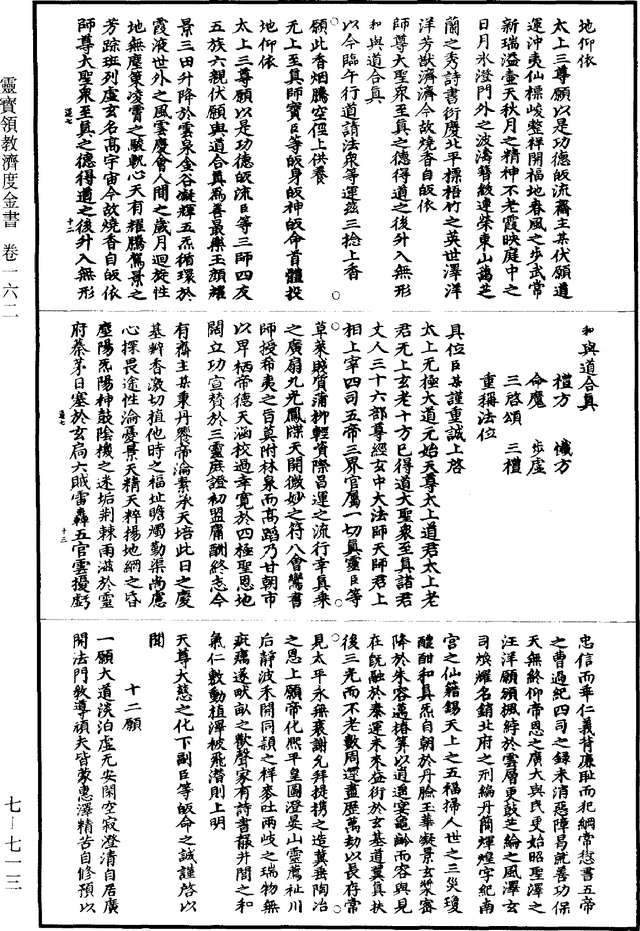 靈寶領教濟度金書 卷一六二
七—七一三
地仰依
太上三尊願以是功德皈流齋主某伏願道
運沖夷仙標峻整祥開福地春風之步武常
新瑞溢壺天秋月之精神不老霞映庭中之
日月氷澄門外之波濤簪紱連榮東山藹芝
蘭之秀詩書衍慶北平標梧竹之英世澤洋
洋芳猷濟濟今故燒香自皈依
師尊大聖衆至真之德得道之後升入無形
和與道合真
以今臨午行道請法衆等運茲三捻上香
願此香烟騰空徑上供養
无上至真師寶臣等皈身皈神皈命首體投
地仰依
太上三尊願以是功德皈流臣等三師四友
五族六親伏願與道合真爲善最樂玉顏耀
景三田升降於雲泉金谷凝輝五炁循環於
霞液世外之風雲慶會人間之歲月迴旋性
地無塵策凌霄之駿軌心天有耀騰駕景之
芳踪班列虛玄名高宇宙今故燒香自皈依
師尊大聖衆至真之德得道之後升入無形
和與道合真
禮方 懺方
命魔 步虛
三啓頌 三禮
重稱法位
具位臣某謹重誠上啓
太上无極大道元始天尊太上道君太上老
君无上玄老十方已得道大聖衆至真諸君
丈人三十六部尊經玄中大法師天師君上
相上宰四司五帝三界官屬一切真靈臣等
草萊賤質蒲柳輕資際昌運之流行幸真乘
之廣扇九光鳳牒天開微妙之符八會鸞書
師授希夷之旨莫附林泉而高蹈乃甘朝市
以卑栖帝德天涵校過幸寬於四極聖恩地
闊立功宣贊於三靈庶證初盟庸酬終志今
有齋主某秉丹饗帝瀹素承天培此日之慶
基粹香激切植他時之福址瞻燭勤渠尚慮
心探畏途性淪憂景天精天粹揚地網之昏
塵陽炁陽神鼓陰機之迷垢荆棘雨滋於靈
府蓁茅日塞於玄局六賊雷轟五官雲擾虧
忠信而乖仁義背廉耻而犯綱常愆書五帝
之曹過紀四司之錄未消惡障曷就善功保
天無終仰帝恩之廣大與民更始昭聖澤之
汪洋願頒楓綍於雲層更鼓芝綸之風澤玄
司煥耀名銷北府之刑編丹簡輝煌字紀南
宮之仙籍錫天上之五福掃人世之三災瓊
醴酣和真炁自朝於丹臉玉華凝景玄漿密
降於朱容邁椿筭以逍遙宴龜齡而容與見
在旣融於泰運未來益衍於玄基道冀真扶
後三光而不老數周還盡歷萬劫以長存常
見太平永無衰謝允拜提携之造冀垂陶冶
之恩上願帝化熈平皇圖澄晏山靈薦祉川
后靜波禾開同穎之祥麥吐兩岐之瑞物無
疵癘遂畎畝之歡聲家有詩書藹井閭之和
氣仁敷動植澤被飛潛則上明
天尊大慈之化下副臣等皈命之誠謹啓以
聞
十二願
一願大道淡泊虛无安閑空寂澄清自居廣
開法門教導頑夫皆蒙惠澤精苦自修預以